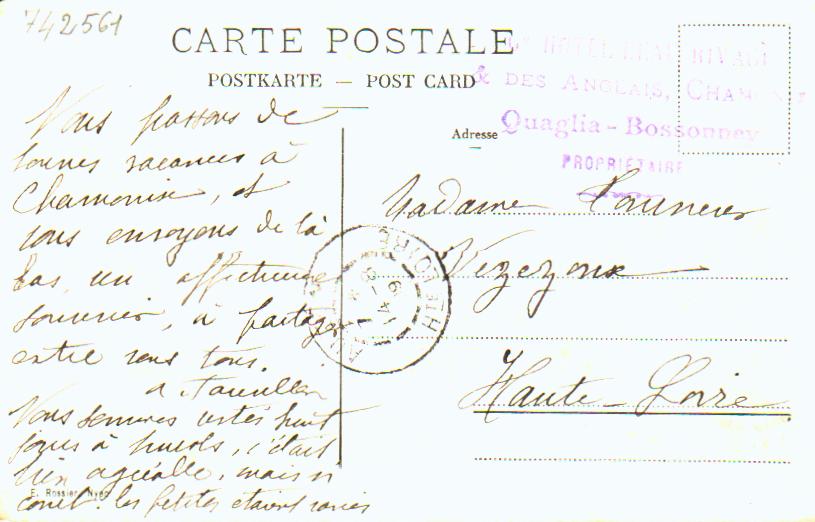 742561
CARTE POSTALE
POSTKARTE — POST CARD
Gd HOTEL BEAU RIVAGE
& DES ANGLAIS, CHAMONIX
Quaglia - Bossonney
PROPRIÉTAIRE
Adresse
HTE LOIRE
Madame
Vezezoux
Haute-Loire
Vous passons de
bonnes vacances à
Chamonix, et
vous envoyons de là
bas, un affectueux
souvenir, à partager
entre vous tous.
Nous sommes restés huit
jours à , c'était
bien agréable, mais si
court. les petites étaient ravies
E. Rossier, Nyon